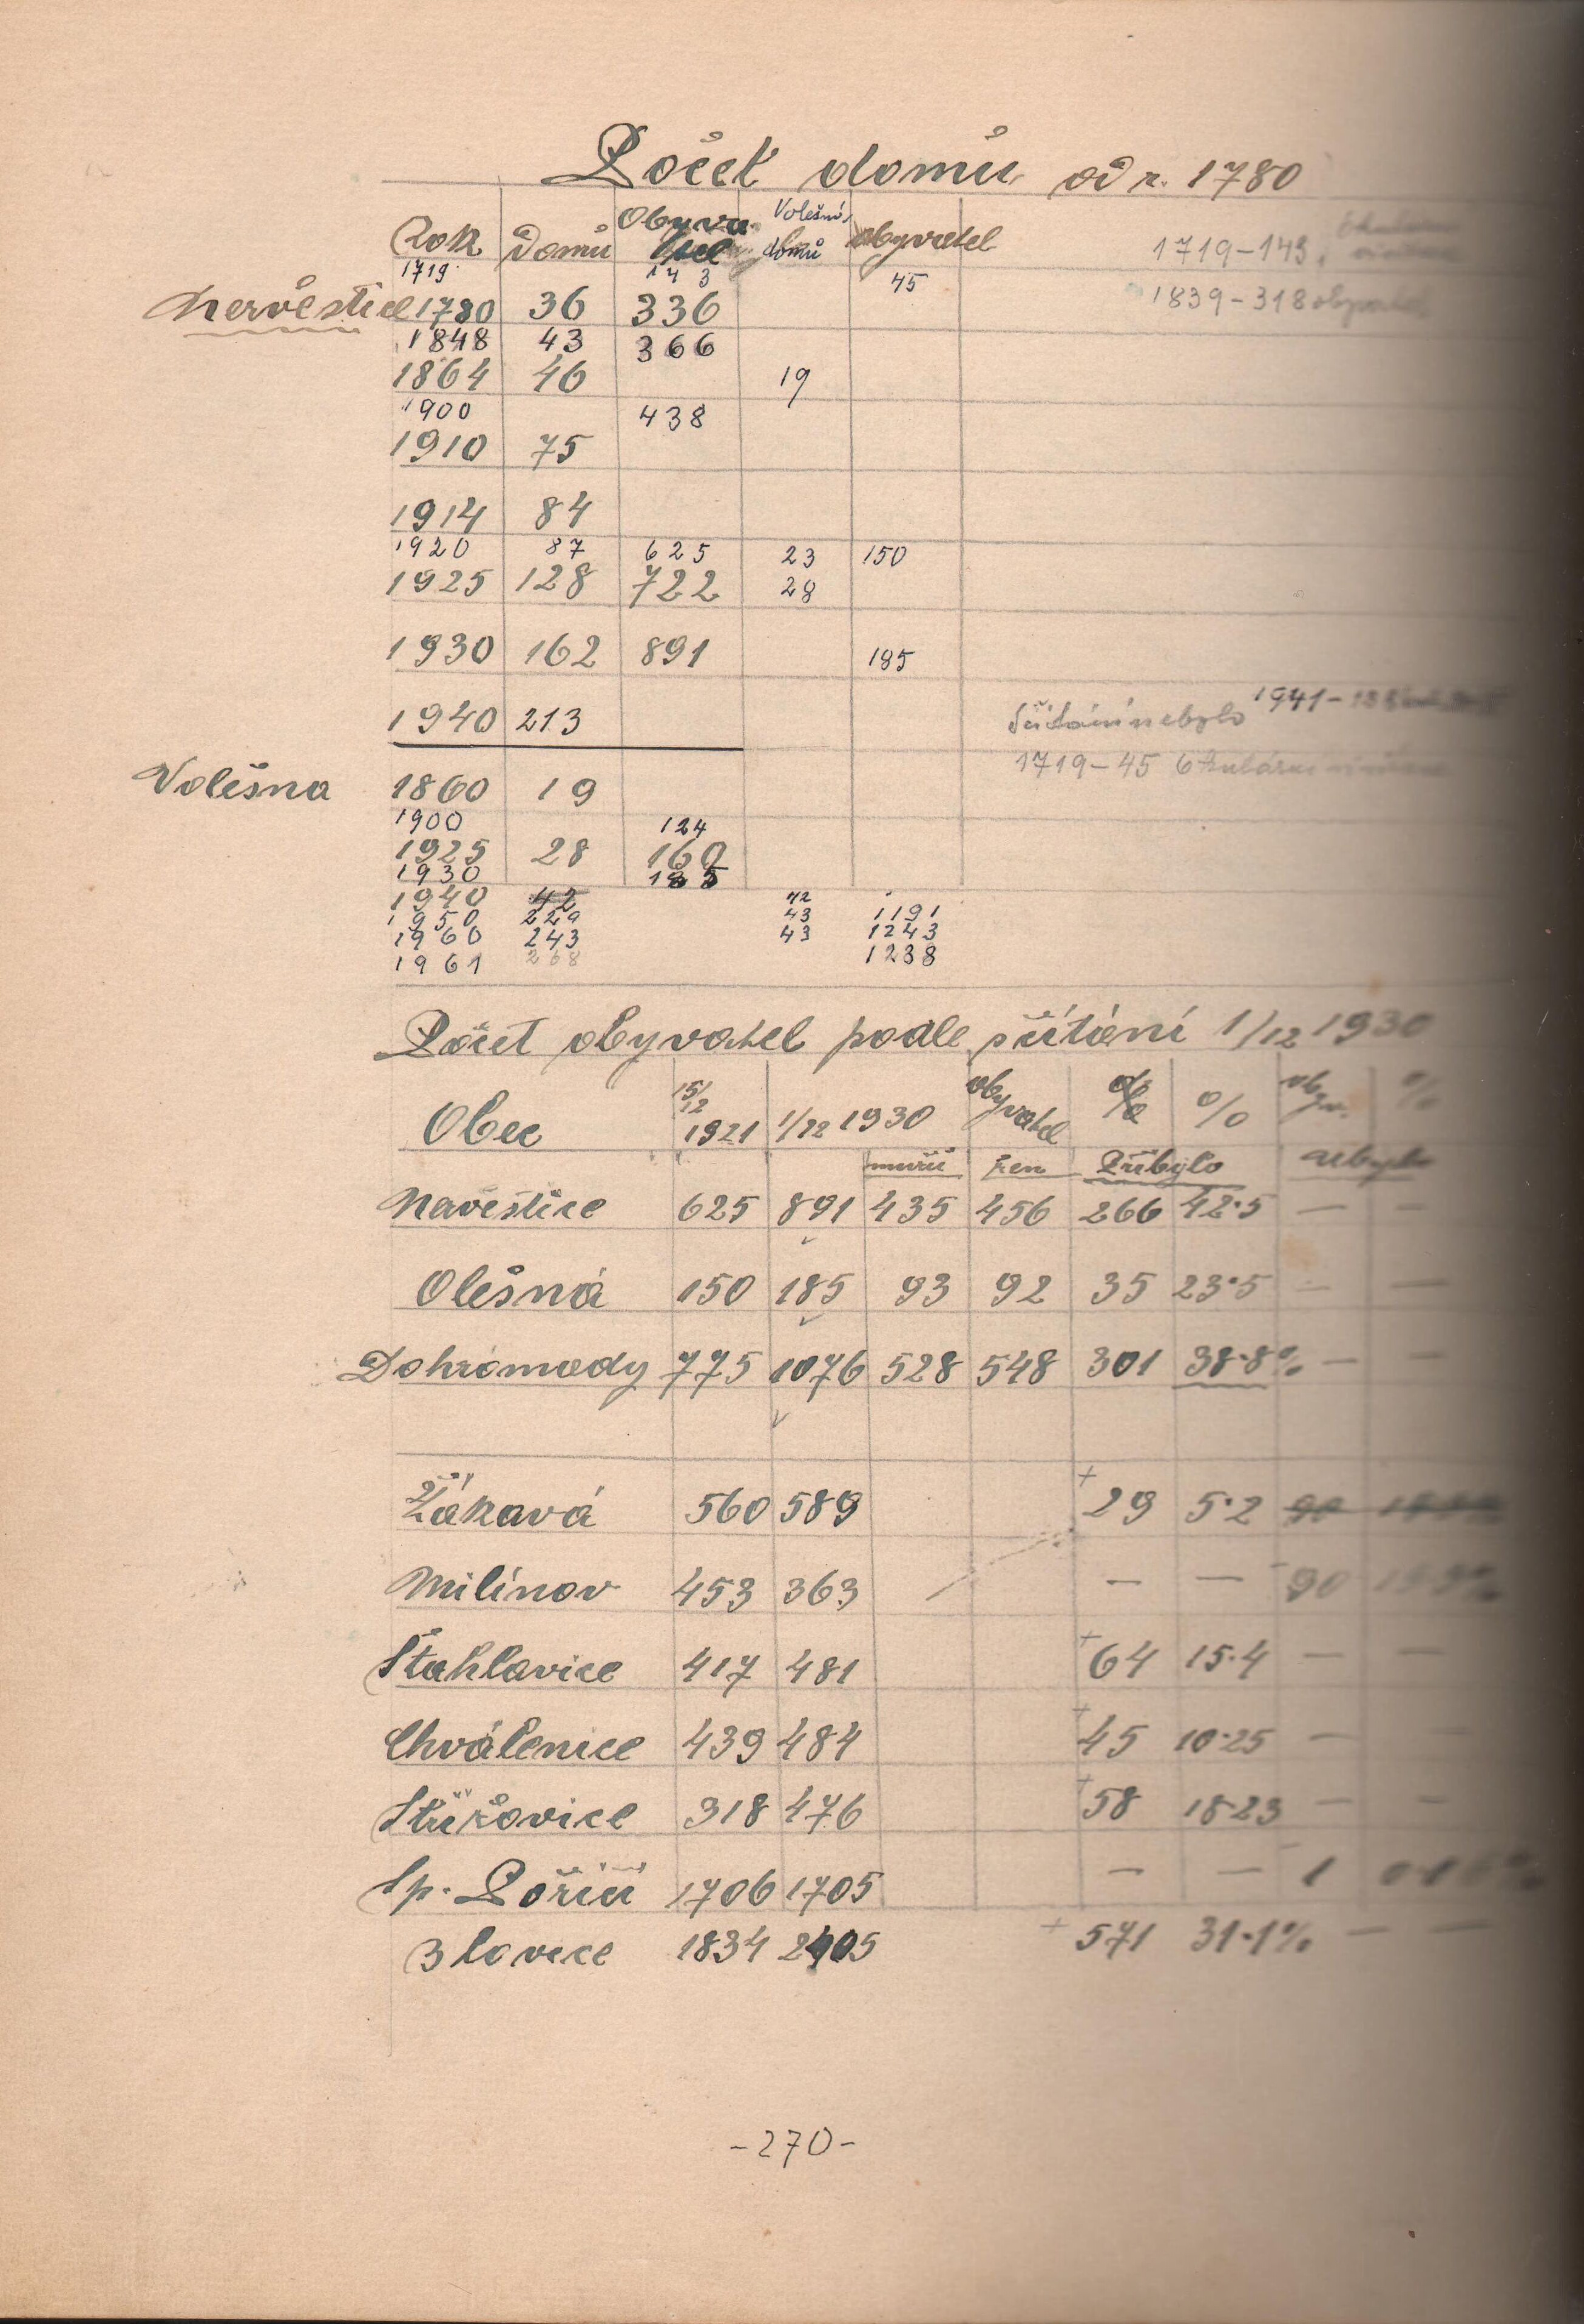 Počet domů od r. 1780
Rok Domů Obyvatel Volešná domů obyvatel
1719 143 45 1719-143,
Nevěstice 1780 36 336 1839-318 obyvatel
1848 43 366
1864 46 19
1900 438
1910 75
1914 84
1920 87 625 23 150
1925 128 722 28
1930 162 891 185
1940 213 Sčítání nebylo 1941-
1719-45
Volešna 1860 19
1900 124
1925 28 160
1930 185
1940 42 42
1950 229 43 1191
1960 243 43 1243
1961 268 1238
Počet obyvatel podle sčítání 1/12 1930
Obec 15/12 1921 1/12 1930 obyvatel % % obyv. %
mužů žen Přibylo ubylo
Nevěstice 625 891 435 456 266 42·5 — —
Olešná 150 185 93 92 35 23·5 — —
Dohromady 775 1076 528 548 301 38·8% — —
Žákavá 560 589 + 29 5·2 90
Milínov 453 363 — — - 90
Šťahlavice 417 481 + 64 15·4 — —
Chválenice 439 484 + 45 10·25 — —
Střížovice 318 476 + 58 18·23 — —
Sp. Poříčí 1706 1705 — — 1
Blovice 1834 2405 + 571 31·1% — —
-270-